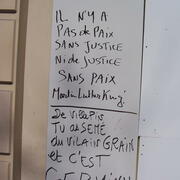 IL N'Y A
PAS de PAIX
SANS JUSTICE
Ni de JUSTICE
SANS PAIX
Martin Luther King.
De VillePin
TU AS SEMÉ
du VILAIN GRAIN
et C'EST